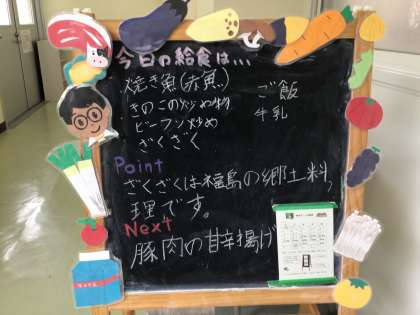 今日の給食は…
焼き魚(赤魚)
きのこの炒め物
ビーフン炒め
ざくざく
ご飯
牛乳
Point
ざくざくは福島の郷土料
理です。
Next
豚肉の甘辛揚げ